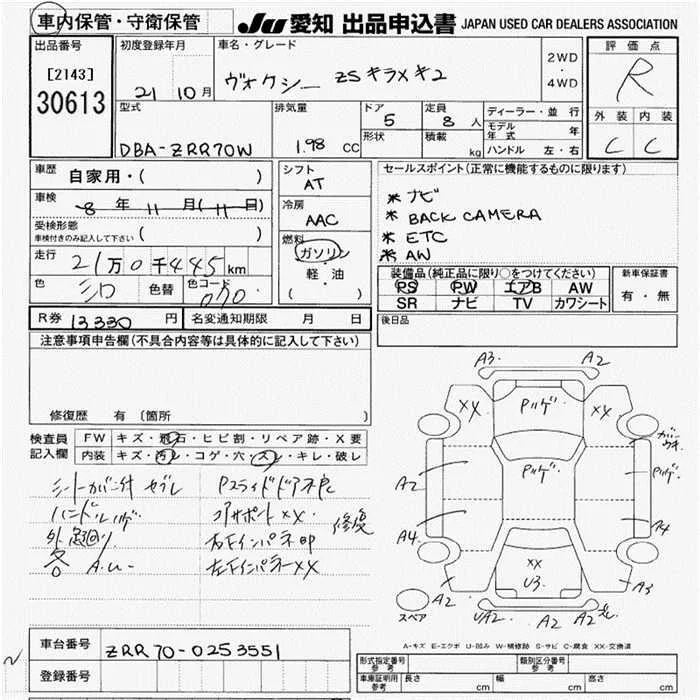 車内保管・守衛保管
JU 愛知 出品申込書 JAPAN USED CAR DEALERS ASSOCIATION
出品番号
[2143]
30613
初度登録年月
21 10月
車名・グレード
ヴォクシー ZSキラメキ2
2WD
・
4WD
評価点
R
外装 内装
C C
型式
DBA-ZRR70W
排気量
1.98 CC
ドア
5
形状
定員
8 人
積載
kg
ディーラー・並行
モデル年式 年
ハンドル 左・右
車歴
自家用・( )
車検
8年 11月(11日)
受検形態
車検付きのみ記入して下さい ( )
走行
21万0千445km
色
シロ
色替
色コード
070
シフト
AT
冷房
AAC
燃料
ガソリン
・
軽・油
( )
セールスポイント(正常に機能するものに限ります)
* ナビ
* BACK CAMERA
* ETC
* AW
装備品(純正品に限り○をつけてください)
PS PW エアB AW
SR ナビ TV カワシート
新車保証書
有・無
R券 13330 円
名変通知期限 月 日
後日品
注意事項申告欄(不具合内容等は具体的に記入して下さい)
修復歴 有〔箇所
検査員
記入欄
FW キズ・飛石・ヒビ割・リペア跡・X要
内装 キズ・汚レ・コゲ・穴・スレ・キレ・破レ
シートカバー付 ヨゴレ
ハンドルハゲ
外 急回り
各 A.U-
Pスライドドア不良
コアサポートXX
右Fインパネ凹
左Fインパネ-XX
修復
A3 A2
XX Pハゲ XX
ガーウキ
A2 Pハゲ Pハゲ
A4 A4
XX
U3
A2 A3
UA2 A2 A2
スペア
A-キズ E-エクボ U-凹み W-補修跡 S-サビ C-腐食 XX-交換済
車台番号
ZRR70-0253551
登録番号
型式指定番号
参考
類別区分番号
参考
車庫証明用
参考
長さ cm 幅 cm 高さ cm